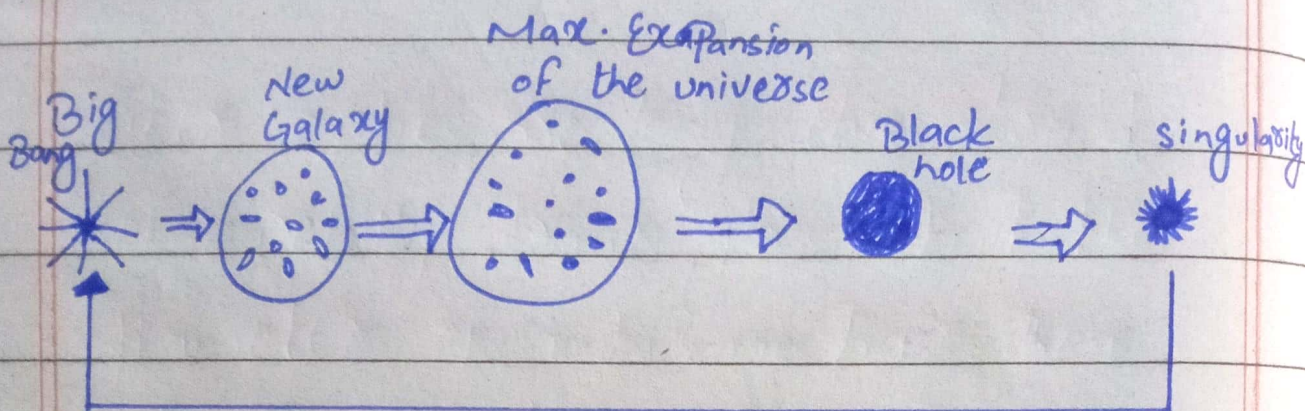 Big
Bang
New
Galaxy
Max. Expansion
of the universe
Black
hole
singularity